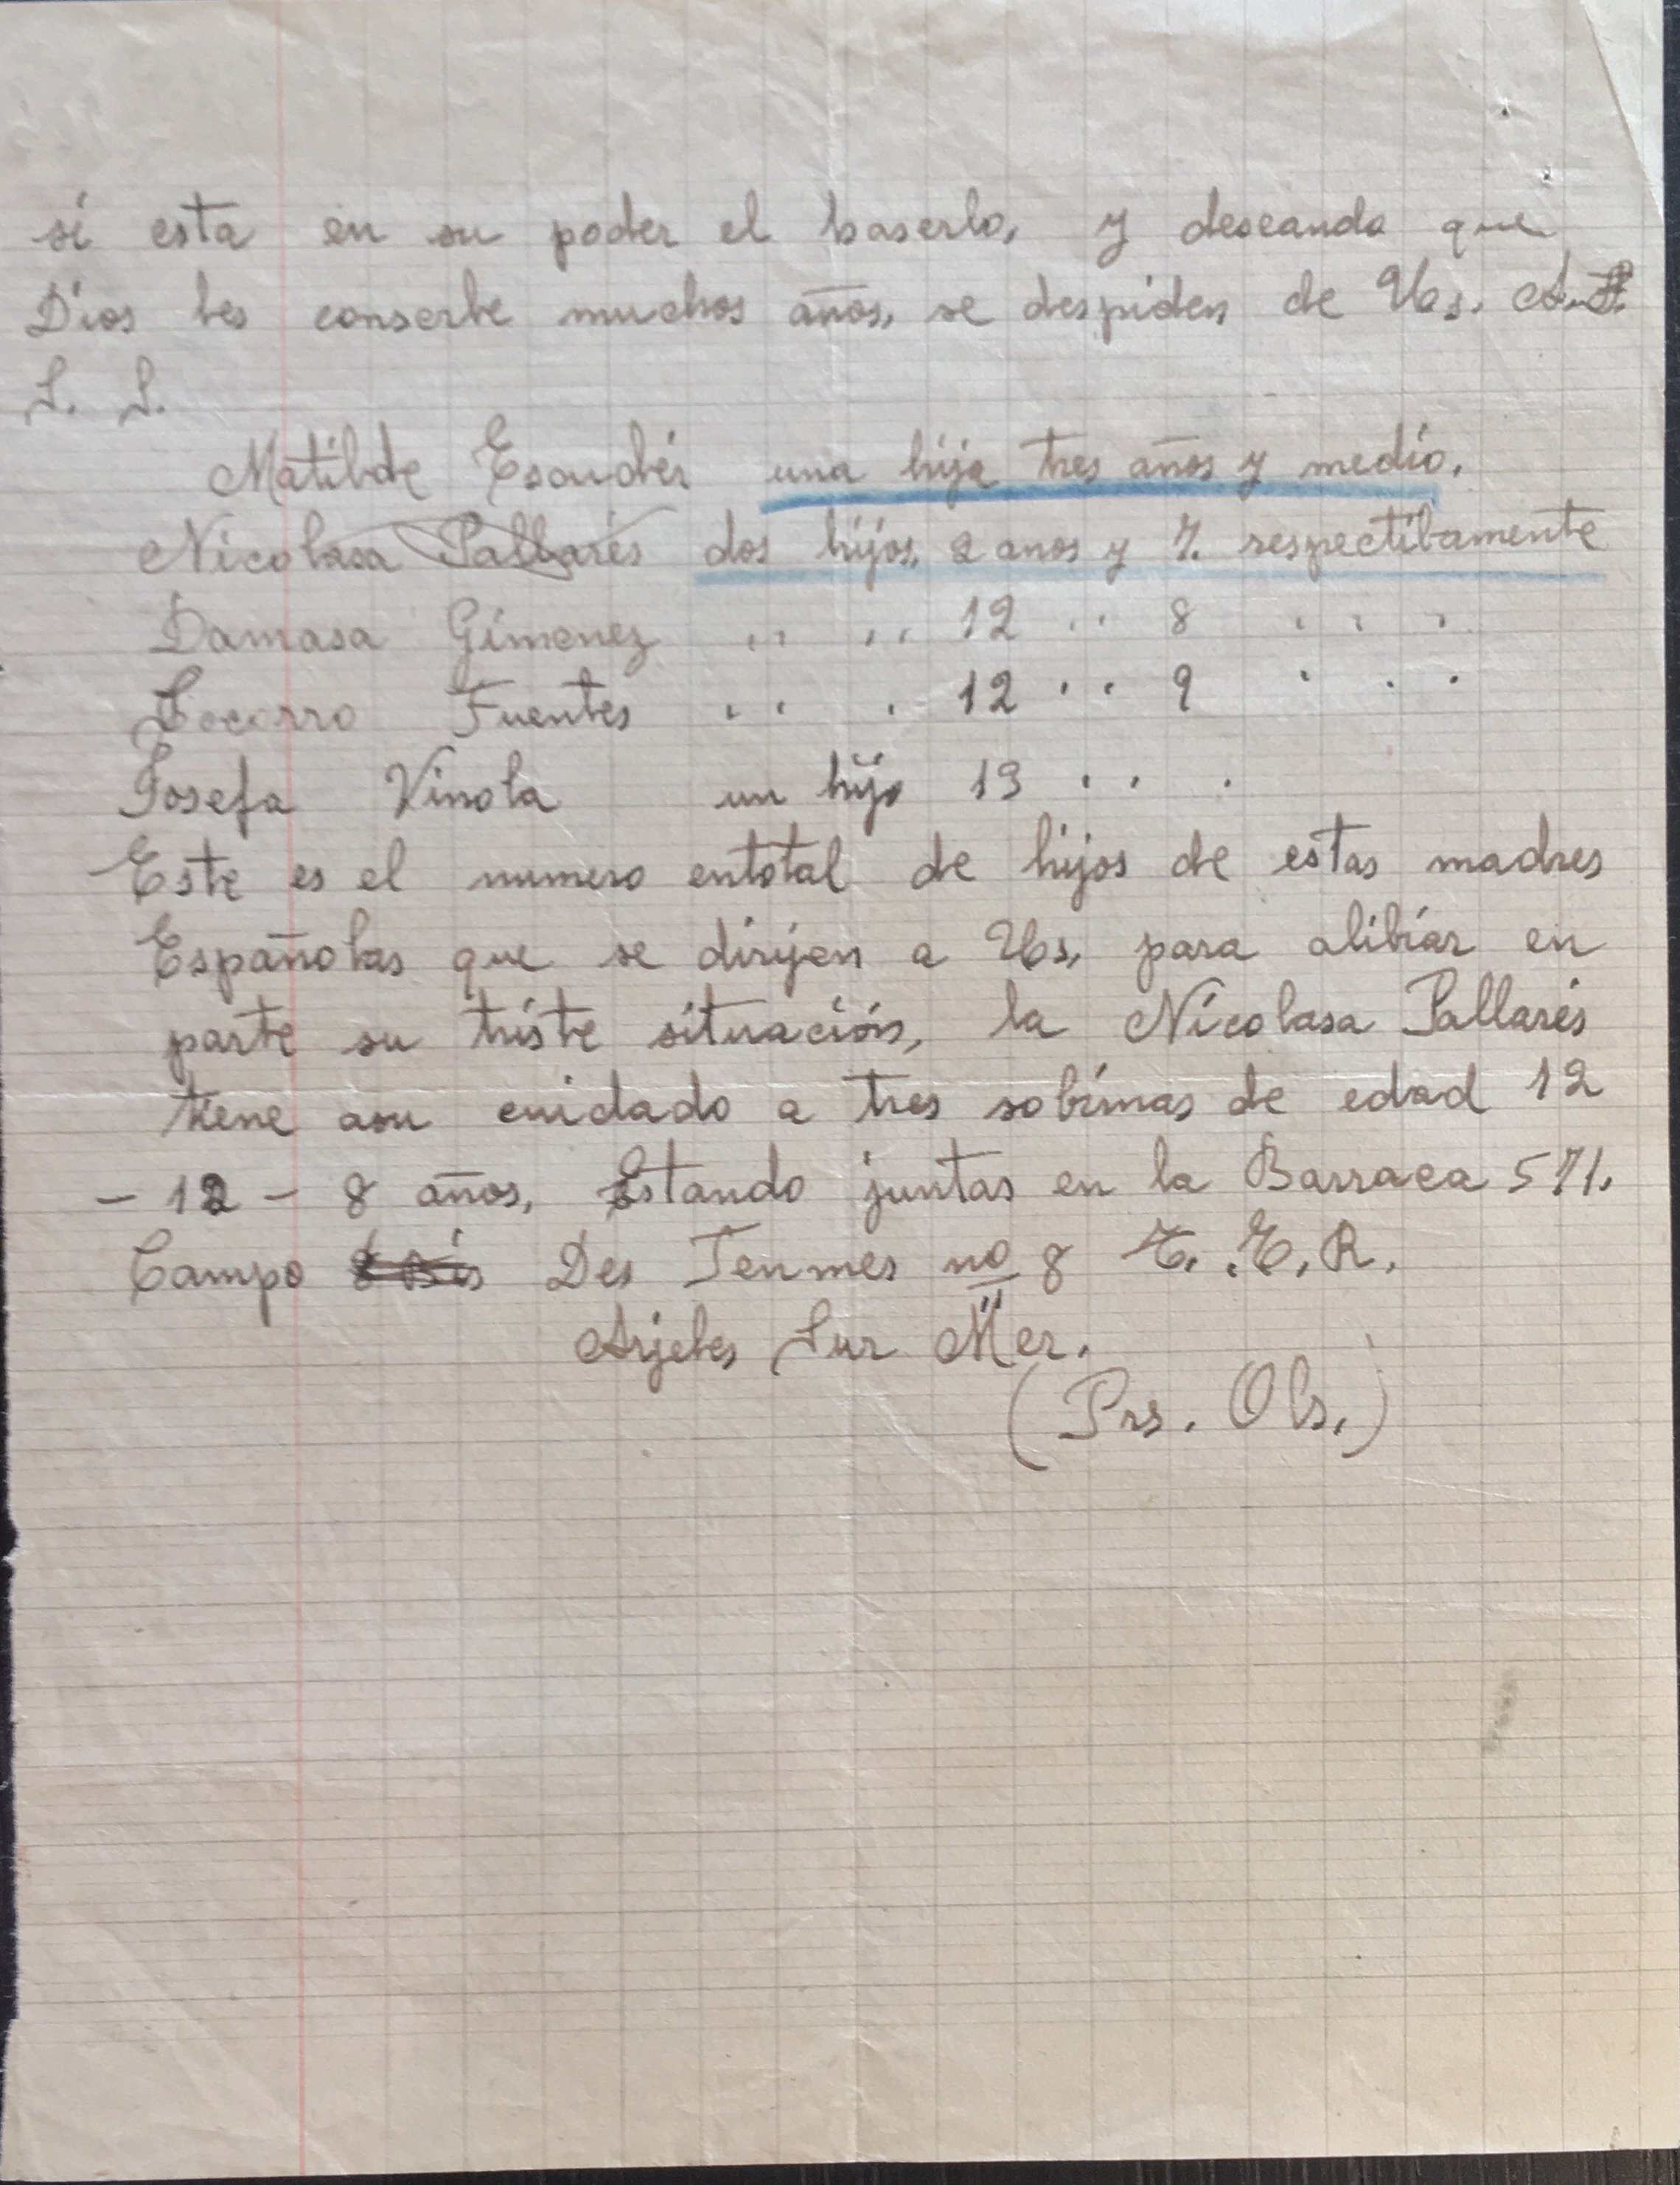 si esta en su poder el haserlo, y deseando que
Dios les conserbe muchos años, se despiden de Vds. A.
S. S.
Matilde Escudér una hija tres años y medio.
Nicolasa Pallarés dos hijos, 2 anos y 7. respectibamente
Damasa Gimenez ,, ,, 12 ,, 8 , , ,
Socorro Fuentes ,, , 12 ,, 9 , , ,
Josefa Vinola un hijo 13 , , ,
Este es el numero entotal de hijos de estas madres
Españolas que se dirijen a Vds, para alibiar en
parte su triste situación, la Nicolasa Pallarés
tiene asu cuidado a tres sobrinas de edad 12
- 12 - 8 años, Estando juntas en la Barraca 571.
Campo Des Fenmes no 8 E. E. R.
Arjeles Sur Mer.
(Prs. Ols.)